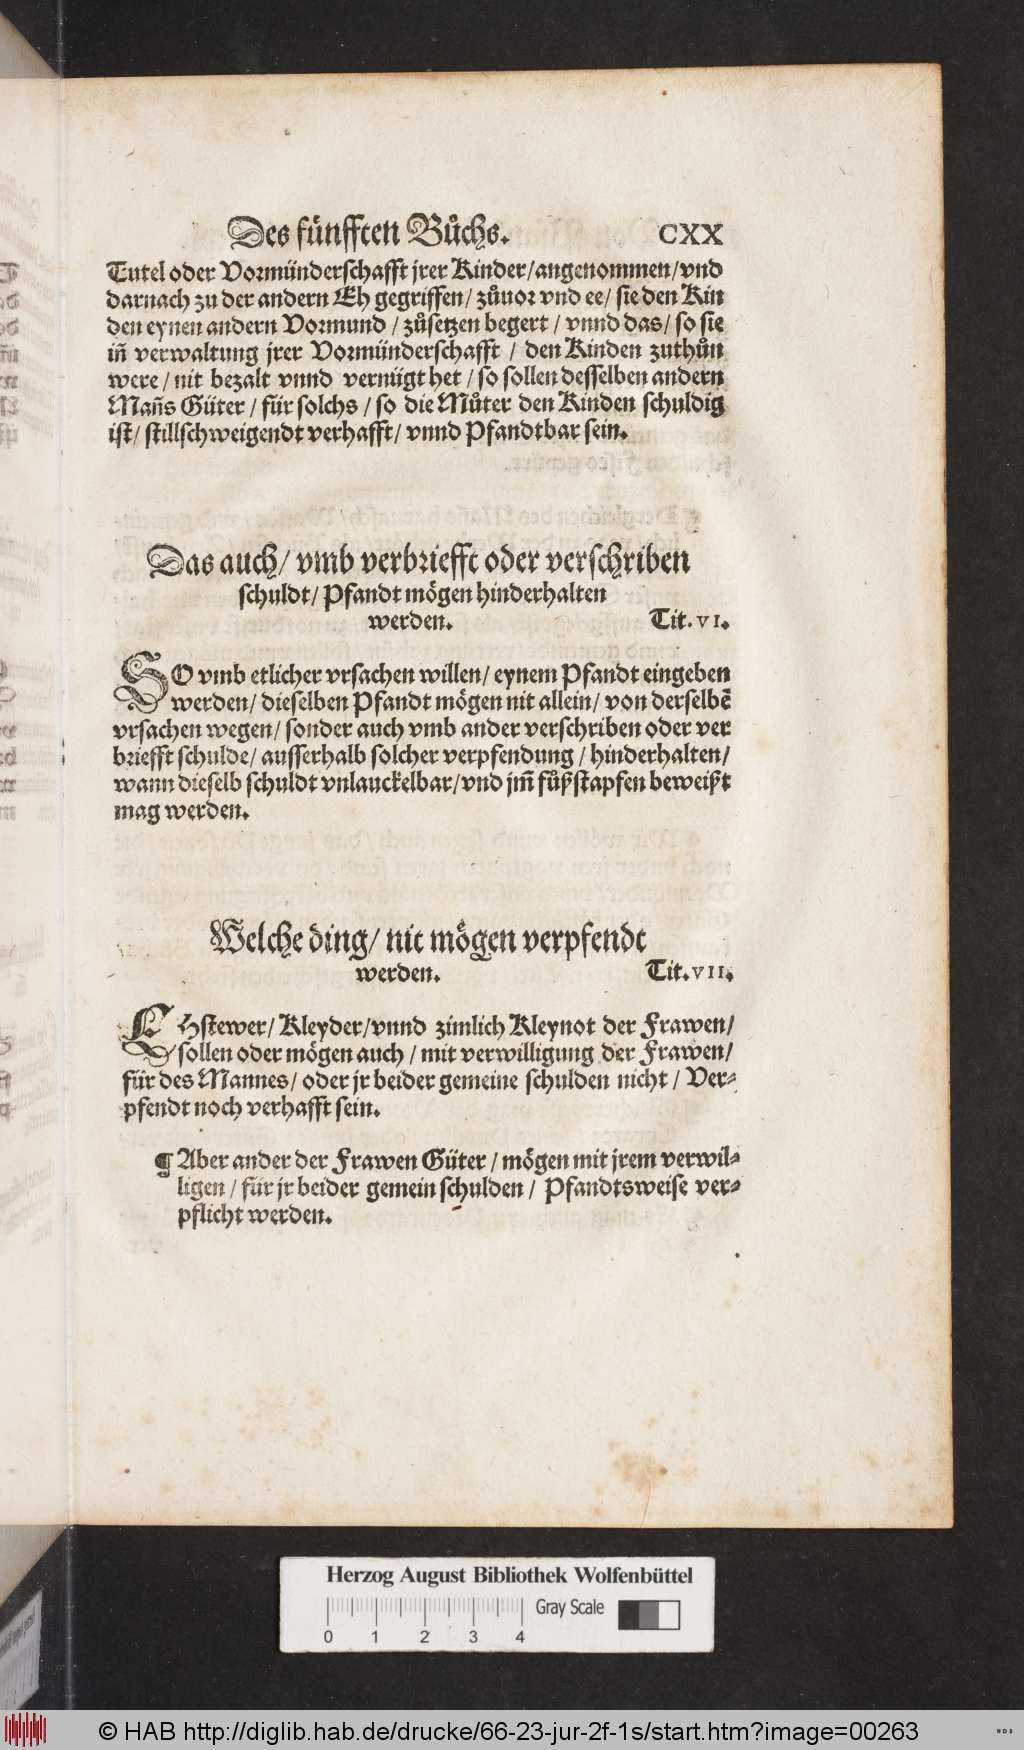 Des fünfften Bůchs. CXX
Tutel oder Vormünderschafft jrer Kinder/angenommen/vnd
darnach zu der andern Eh gegriffen/ zůuor vnd ee/ sie den Kin
den eynen andern Vormund / zůsetzen begert / vnnd das/ so sie
iñ verwaltung jrer Vormünderschafft / den Kinden zuthůn
were / nit bezalt vnnd vernügt het / so sollen desselben andern
Mañs Güter / für solchs / so die Můter den Kinden schuldig
ist/ stillschweigendt verhafft/ vnnd Pfandtbar sein.
Das auch/ vmb verbriefft oder verschriben
schuldt/ Pfandt mögen hinderhalten
werden. Tit. VI.
SO vmb etlicher vrsachen willen/ eynem Pfandt eingeben
werden/ dieselben Pfandt mögen nit allein/ von derselbē
vrsachen wegen/ sonder auch vmb ander verschriben oder ver
briefft schulde/ ausserhalb solcher verpfendung / hinderhalten/
wann dieselb schuldt vnlauckelbar/vnd jm̃ fůßstapfen beweißt
mag werden.
Welche ding/ nit mögen verpfendt
werden. Tit. VII.
EHstewer/ Kleyder/vnnd zimlich Kleynot der Frawen/
sollen oder mögen auch / mit verwilligung der Frawen/
für des Mannes/ oder jr beider gemeine schulden nicht / Ver-
pfendt noch verhafft sein.
¶ Aber ander der Frawen Güter / mögen mit jrem verwil-
ligen / für jr beider gemein schulden / Pfandtsweise ver-
pflicht werden.
Herzog August Bibliothek Wolfenbüttel
Gray Scale
0 1 2 3 4
© HAB http://diglib.hab.de/drucke/66-23-jur-2f-1s/start.htm?image=00263